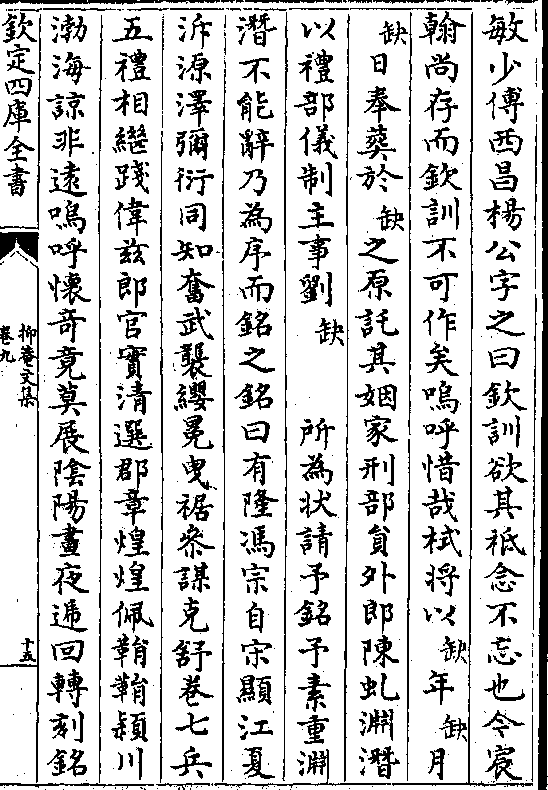 敏少傅西昌楊公字之曰欽訓欲其祗念不忘也今宸
翰尚存而欽訓不可作矣嗚呼惜哉栻將以缺年缺月
缺日奉葬於缺之原託其姻家刑部貟外郎陳虬淵潛
以禮部儀制主事劉缺所為状請予銘予素重淵
潛不能辭乃為序而銘之銘曰有隆馮宗自宋顯江夏
泝源澤彌衍同知奮武襲纓冕曳裾叅謀克舒卷七兵
五禮相繼踐偉兹郎官實清選郡章煌煌佩鞘鞘潁川
渤海諒非遠嗚呼懷竒竟莫展陰陽晝夜逓回轉刻銘
欽定四庫全書
抑菴文集
卷九
十五